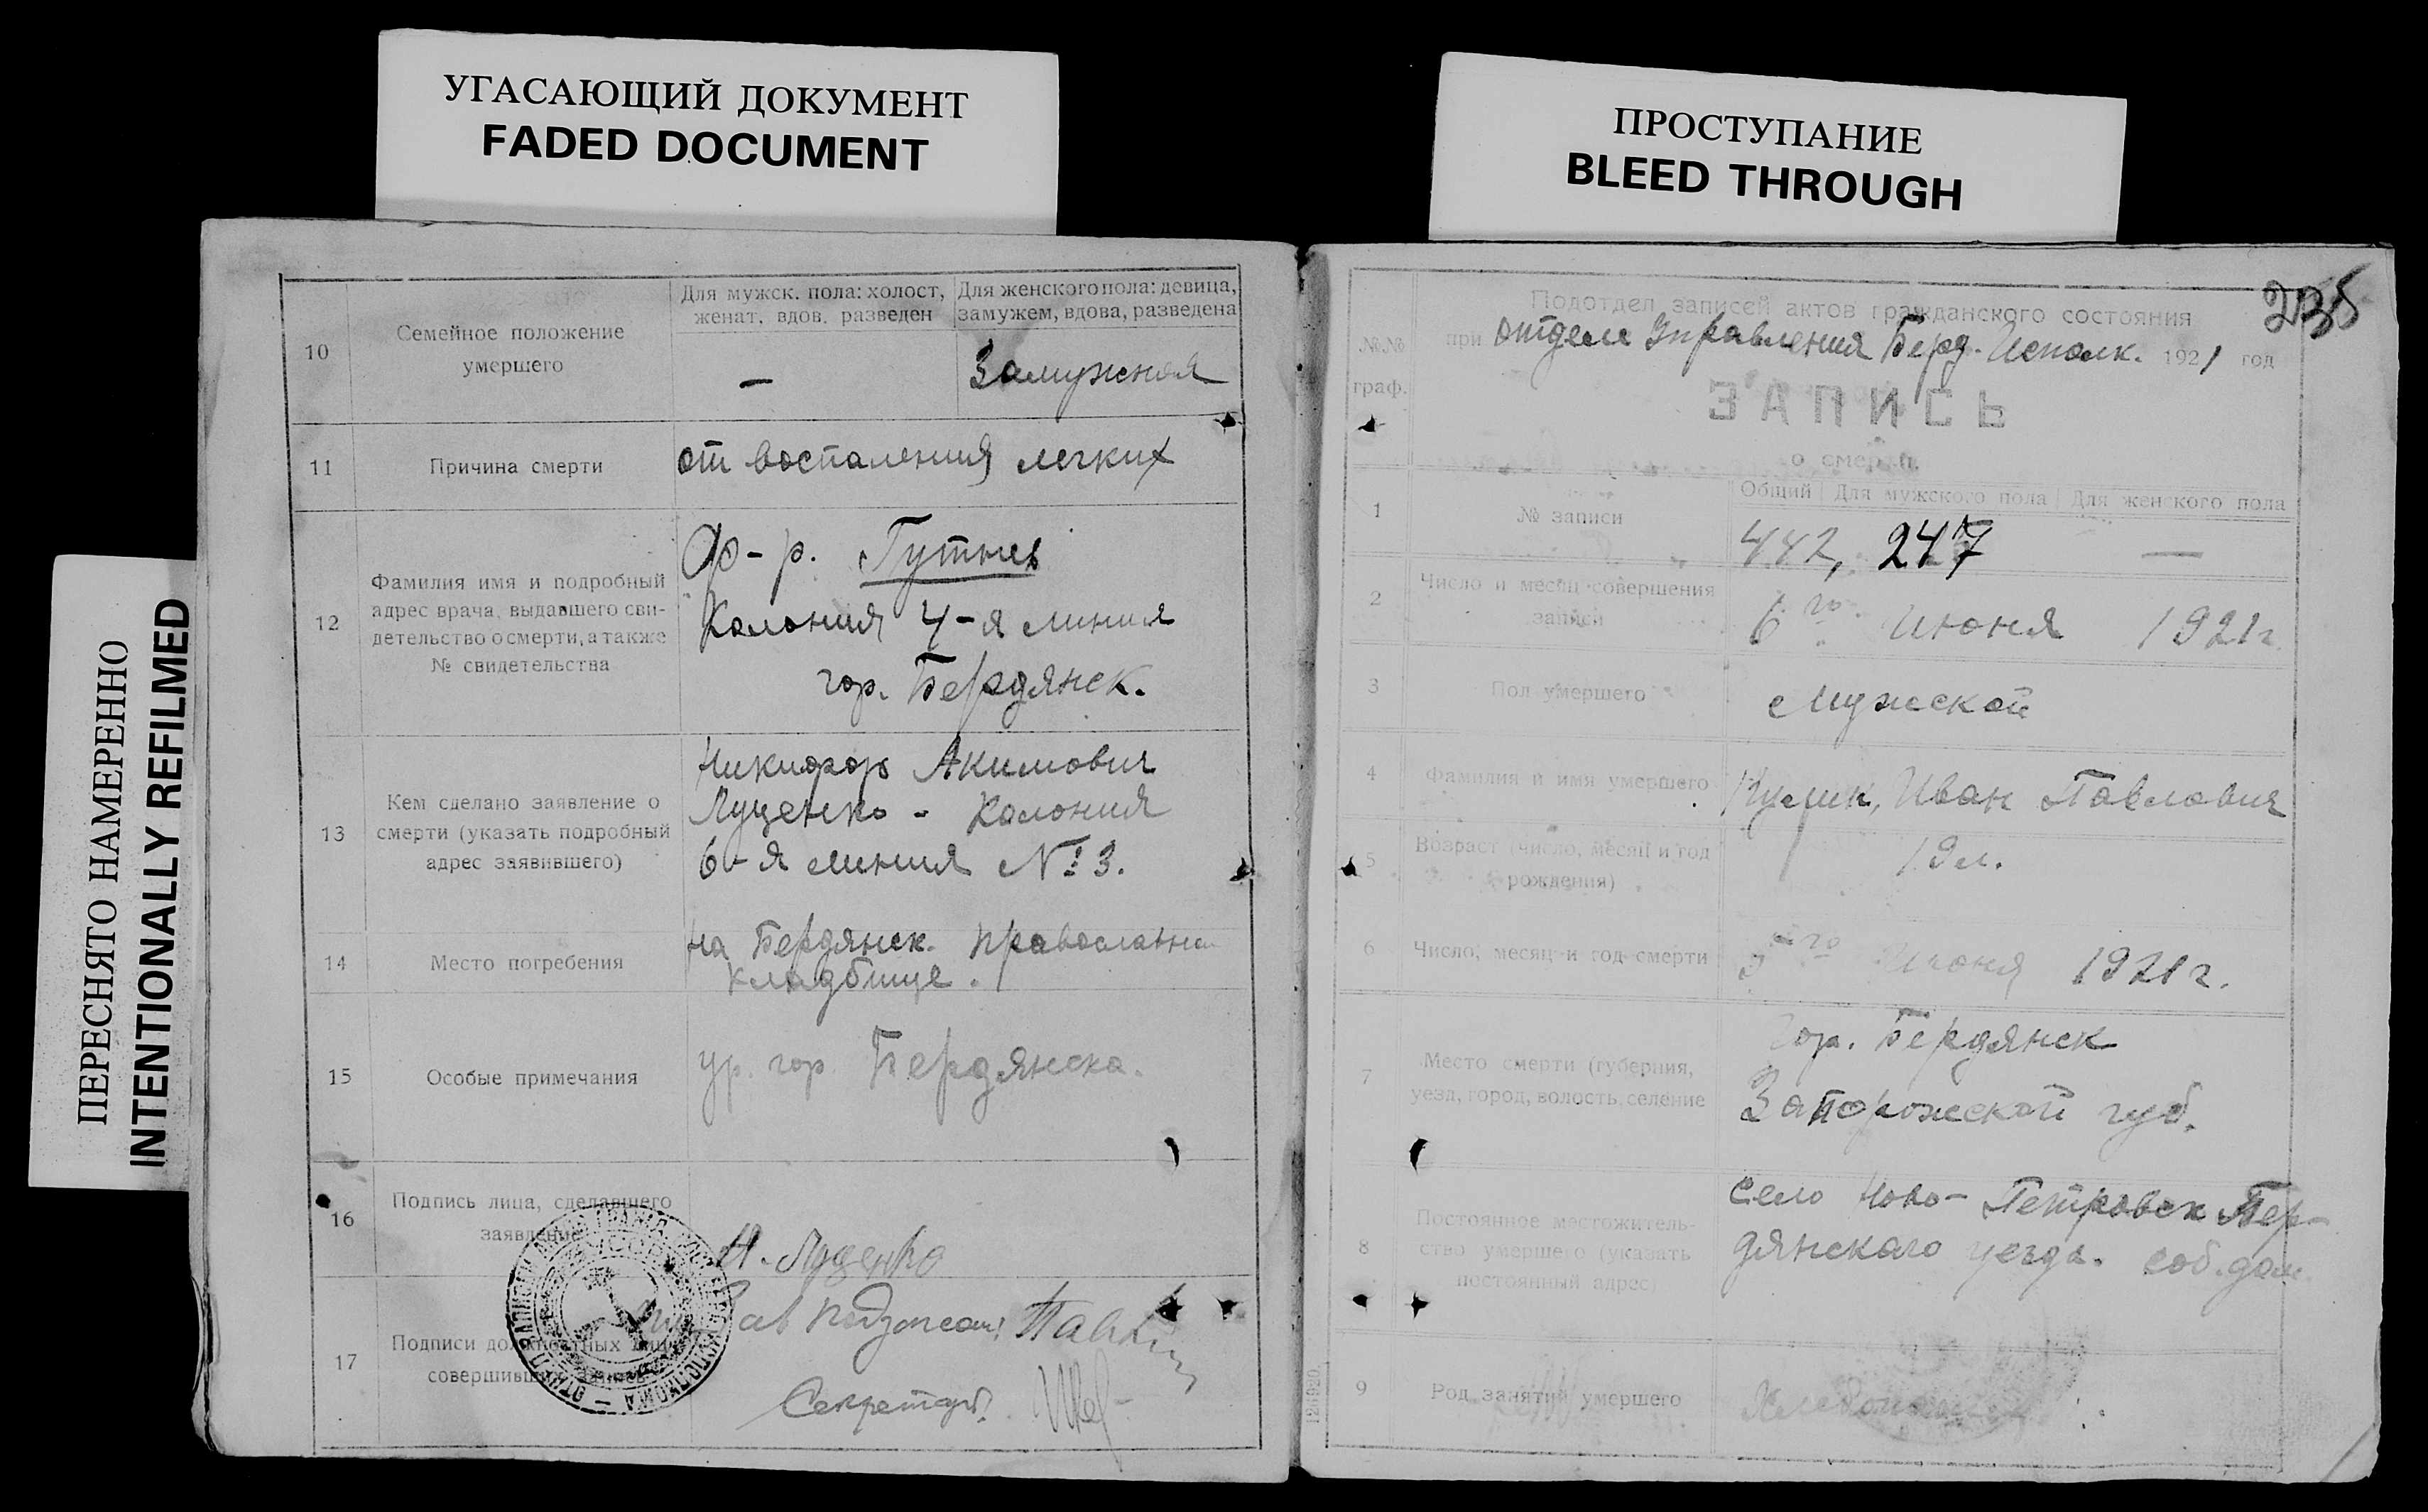 УГАСАЮЩИЙ ДОКУМЕНТ
FADED DOCUMENT
ПРОСТУПАНИЕ
BLEED THROUGH
ПЕРЕСНЯТО НАМЕРЕННО
INTENTIONALLY REFILMED
10
Семейное положение
умершего
Для мужск. пола: холост,
женат, вдов, разведен
Для женского пола: девица,
замужем, вдова, разведена
—
Замужняя
11
Причина смерти
от воспаления легких
12
Фамилия имя и подробный
адрес врача, выдавшего сви-
детельство о смерти, а также
№ свидетельства
Колония 4-я линия
гор. Бердянск.
13
Кем сделано заявление о
смерти (указать подробный
адрес заявившего)
Никифор Акимович
Луценко - Колония
6-я линия № 3.
14
Место погребения
на Бердянск. Православн
кладбище.
15
Особые примечания
ур. гор. Бердянска.
16
Подпись лица, сделавшего
заявление
Н. Луценко
17
Подписи должностных лиц,
совершивших запись
Секретарь
235
№№
граф.
Подотдел записей актов гражданского состояния
при отделе Управления Берд. Исполк. 1921 год
ЗАПИСЬ
о смерти.
1
№ записи
Общий
Для мужского пола
Для женского пола
442, 247 —
2
Число и месяц совершения
записи
6го Июня 1921г.
3
Пол умершего
Мужской
4
Фамилия и имя умершего
Иван Павлович
5
Возраст (число, месяц и год
рождения)
19 л.
6
Число, месяц и год смерти
5го Июня 1921г.
7
Место смерти (губерния,
уезд, город, волость, селение
Гор. Бердянск
Запорожской губ.
8
Постоянное местожитель-
ство умершего (указать
постоянный адрес)
село Ново-Петровск Бер-
дянского уезда. соб. дом.
9
Род занятий умершего